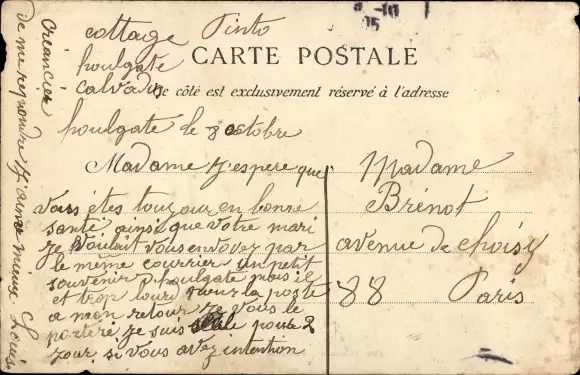 cottage Pinto
houlgate
calvados
CARTE POSTALE
Ce côté est exclusivement réservé à l'adresse
houlgate le 8 octobre
Madame j'espere que
vous étes toujour en bonne
santé ainsi que votre mari
je voulait vous envoyez par
le même courrier un petit
souvenir d houlgate mais il
et trop lourd pour la poste
a mon retour je vous le
porteré je suis seule pour 2
jour si vous avez intention
de me repondre j'aime mieux Louis
Creancier
Madame
Brénot
avenue de choisy
88 Paris